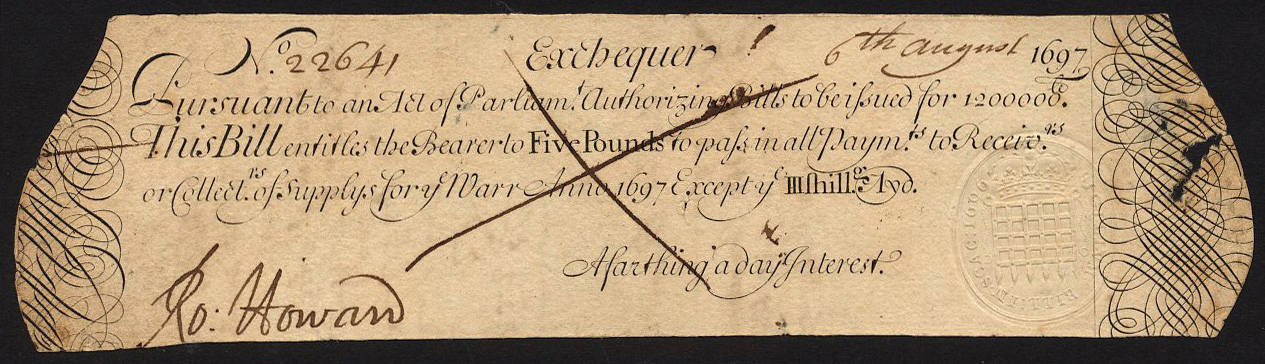 No. 22641 Exchequer 6th august 1697
Pursuant to an Act of Parliam.t Authorizing Bills to be issued for 1200000£.
This Bill entitles the Bearer to Five Pounds to pass in all Paym.ts to Receiv.rs
or Collect.rs of Supplys for ye Warr Anno 1697 Except ye III shill.gs Ayd.
A farthing a day Interest.
Ro: Howard